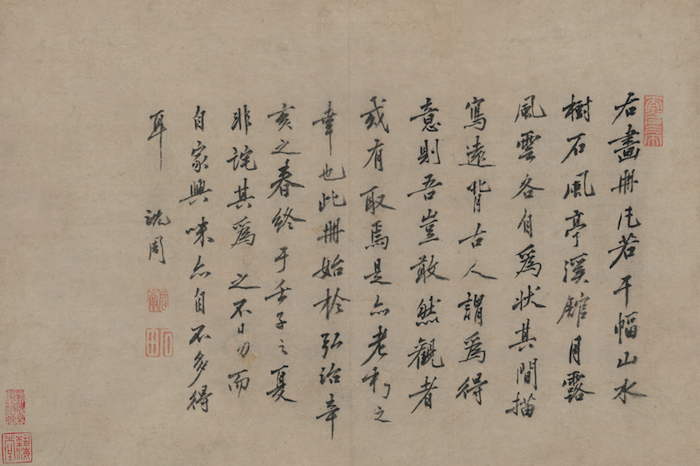 右畫冊凡若干幅山水
樹石風亭溪館月露
風雲各自爲狀其間描
寫遠背古人謂爲得
意則吾豈敢然觀者
或有取焉是亦老朽之
幸也此冊始於弘治辛
亥之春終于壬子之夏
非詫其爲之不易而
自家興味亦自不多得
耳
沈周